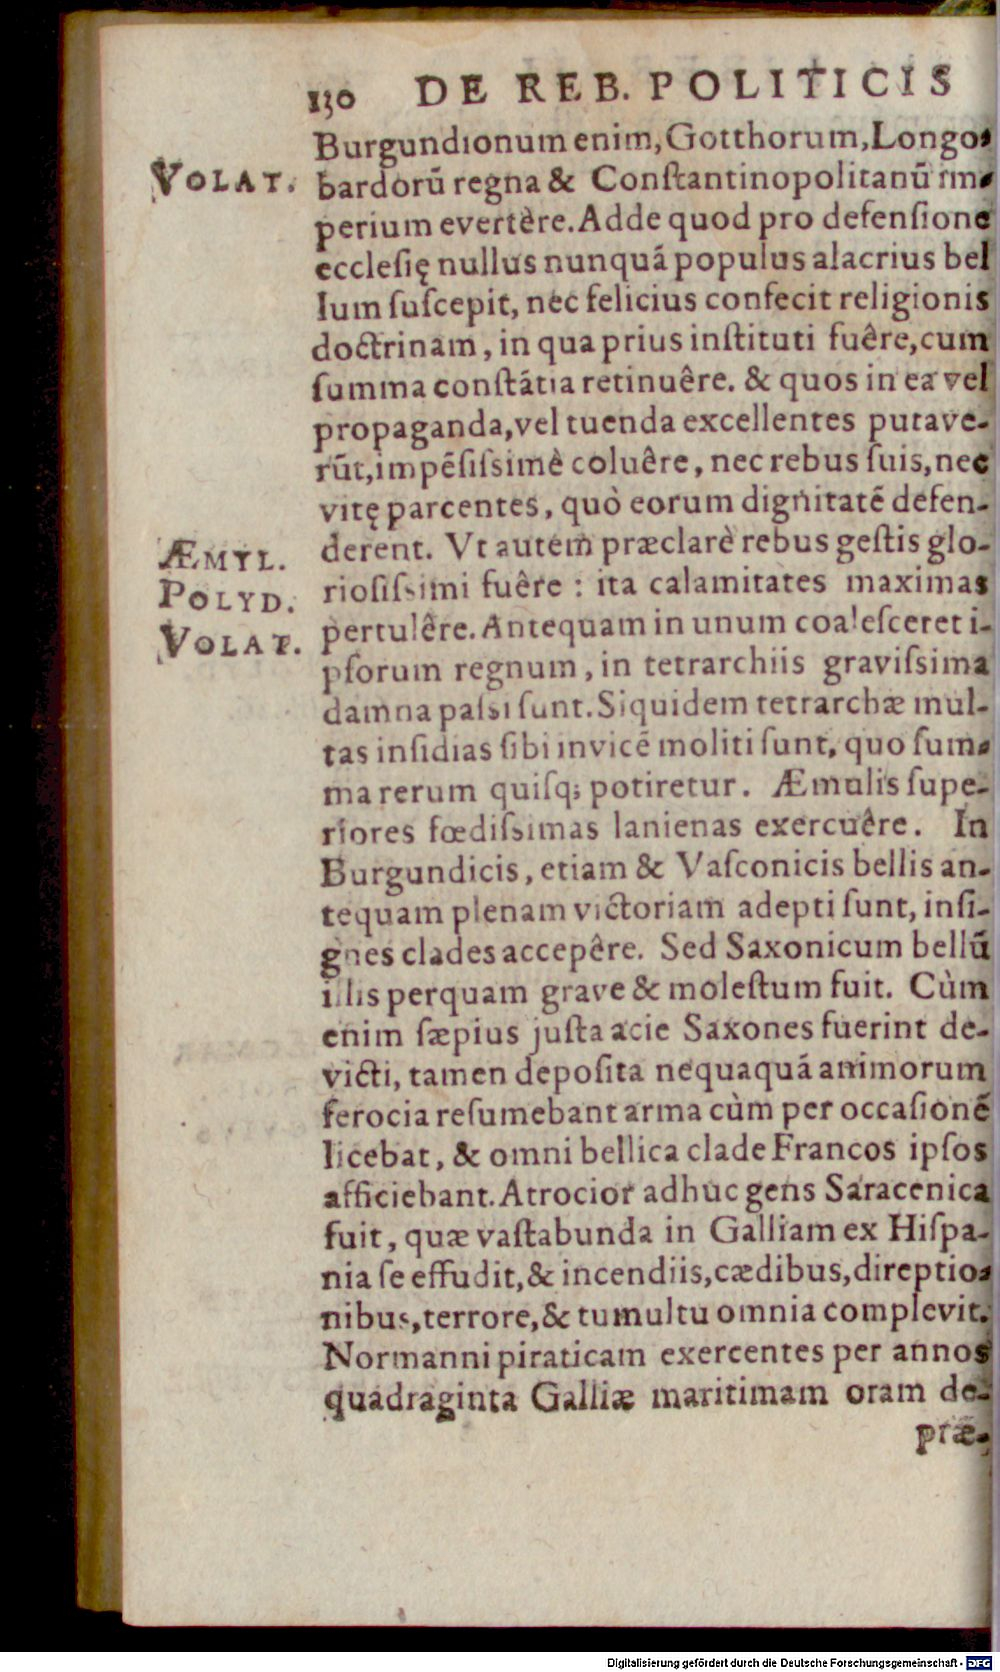 130 DE REB. POLITICIS
Burgundionum enim, Gotthorum, Longo-
VOLAT.
bardorũ regna & Conſtantinopolitanũ im-
perium evertère. Adde quod pro defenſione
eccleſię nullus nunquā populus alacrius bel
lum ſuſcepit, nec felicius confecit religionis
doctrinam, in qua prius inſtituti fuêre, cum
ſumma conſtātia retinuêre. & quos in ea vel
propaganda, vel tuenda excellentes putave-
rūt, impēſiſsimè coluêre, nec rebus ſuis, nec
vitę parcentes, quò eorum dignitatē defen-
derent. Ut autem præclarè rebus geſtis glo-
ÆMYL.
POLYD.
VOLAT.
rioſiſsimi fuêre : ita calamitates maximas
pertulêre. Antequam in unum coaleſceret i-
pſorum regnum, in tetrarchiis graviſſima
damna paſsi ſunt. Siquidem tetrarchæ mul-
tas inſidias ſibi invicē moliti ſunt, quo ſum-
ma rerum quiſq; potiretur. Æmulis ſupe-
riores fœdiſsimas lanienas exercuêre. In
Burgundicis, etiam & Vaſconicis bellis an-
tequam plenam victoriam adepti ſunt, inſi-
gnes clades accepêre. Sed Saxonicum bellū
illis perquam grave & moleſtum fuit. Cùm
enim ſæpius juſta acie Saxones fuerint de-
victi, tamen depoſita nequaquā animorum
ferocia reſumebant arma cùm per occaſionē
licebat, & omni bellica clade Francos ipſos
afficiebant. Atrocior adhuc gens Saracenica
fuit, quæ vaſtabunda in Galliam ex Hiſpa-
nia ſe effudit, & incendiis, cædibus, direptio-
nibus, terrore, & tumultu omnia complevit.
Normanni piraticam exercentes per annos
quadraginta Galliæ maritimam oram de-
præ-
Digitalisierung gefördert durch die Deutsche Forschungsgemeinschaft - DFG